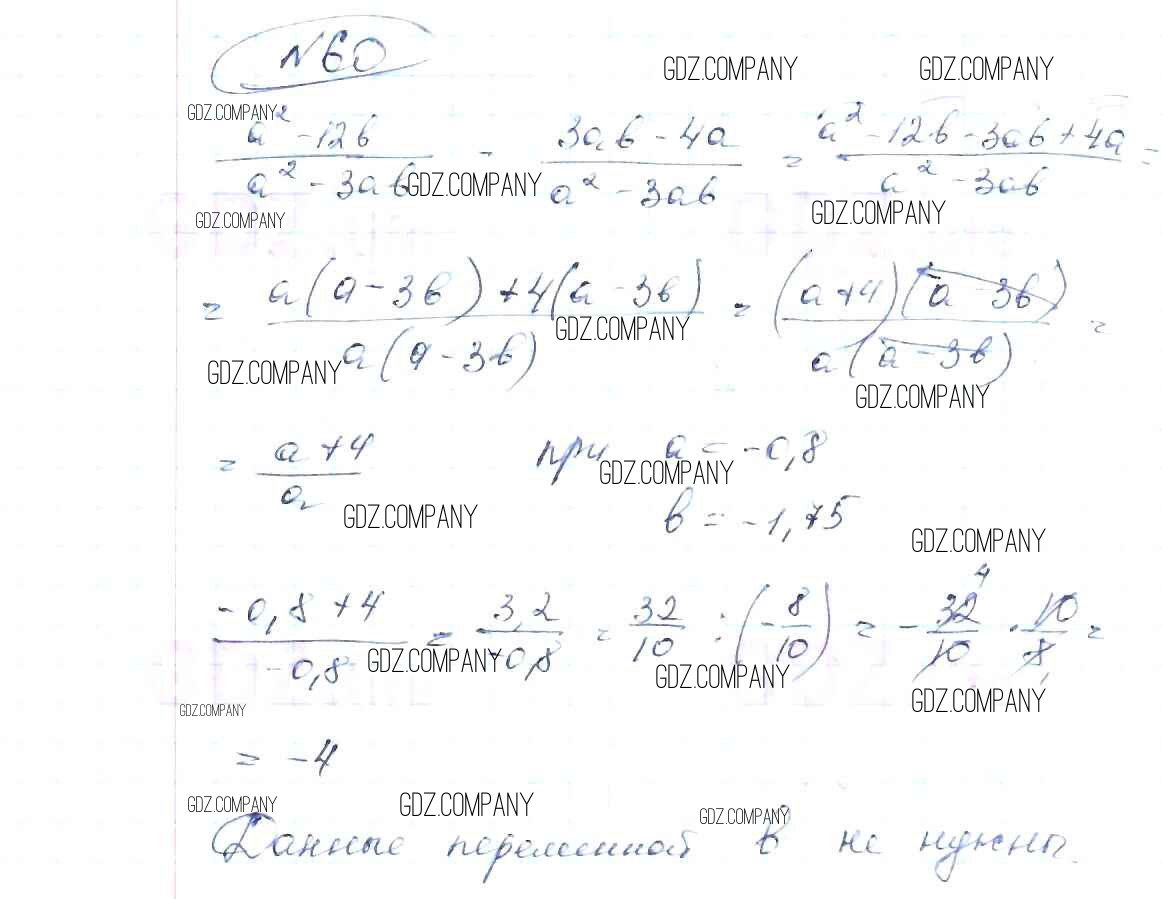 N60
GDZ.COMPANY GDZ.COMPANY
GDZ.COMPANY
a² - 12b / a² - 3ab - 3ab - 4a / a² - 3ab = a² - 12b - 3ab + 4a / a² - 3ab =
GDZ.COMPANY
GDZ.COMPANY GDZ.COMPANY
= a(a - 3b) + 4(a - 3b) / a(a - 3b) = (a + 4)(a - 3b) / a(a - 3b) =
GDZ.COMPANY
GDZ.COMPANY GDZ.COMPANY
= a + 4 / a при a = -0,8
GDZ.COMPANY
b = -1,75
GDZ.COMPANY GDZ.COMPANY
-0,8 + 4 / -0,8 = 3,2 / -0,8 = 32/10 : (-8/10) = -32/10 · 10/8 =
4
1
GDZ.COMPANY GDZ.COMPANY GDZ.COMPANY
GDZ.COMPANY
= -4
GDZ.COMPANY GDZ.COMPANY GDZ.COMPANY
Данные переменной b не нужны.